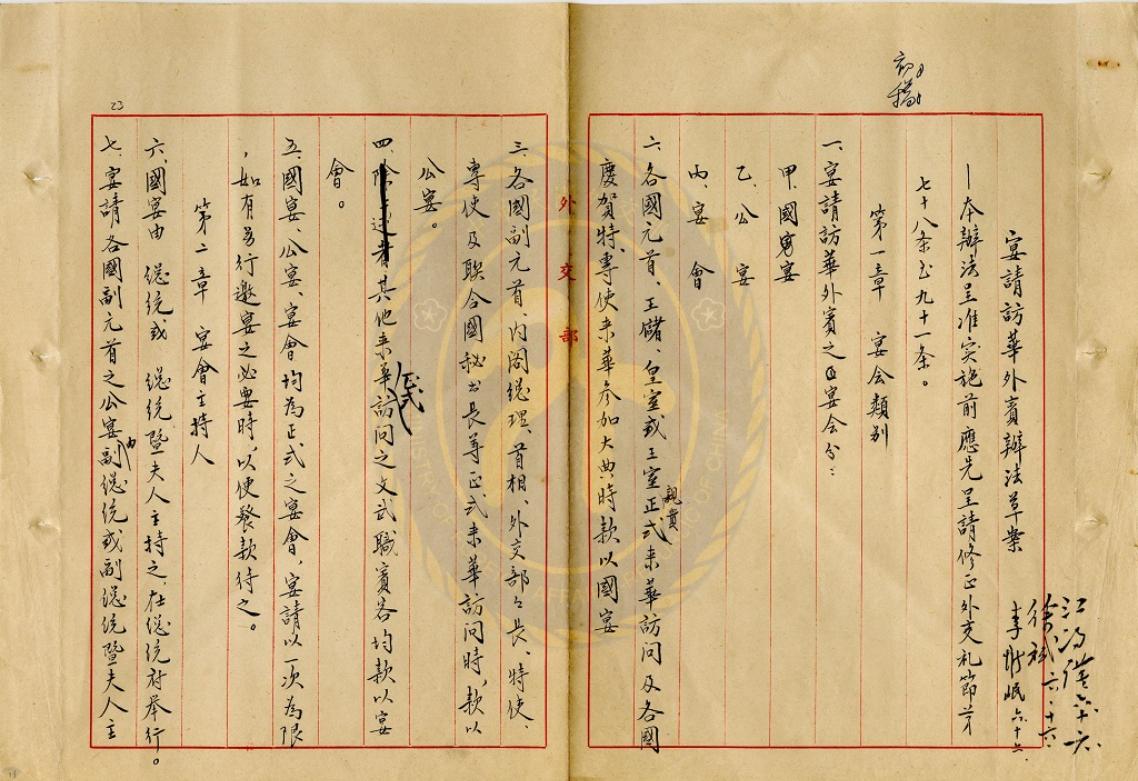 初稿
宴請訪華外賓辦法草案
李
六.十六.
—本辦法呈准實施前應先呈請修正外交礼節第
七十八条至九十一条。
第一章 宴会類別
一、宴請訪華外賓之宴会分：
甲、國宴
乙、公宴
丙、宴會
二、各國元首、王儲、皇室或王室親貴正式來華訪問及各國
慶賀特、專使來華参加大典時款以國宴
外交部
三、各國副元首、內閣總理、首相、外交部々長、特使、
專使及联合國秘书長等正式來華訪問時，款以
公宴。
四、其他正式來華訪問之文武職賓客均款以宴
會。
五、國宴、公宴、宴會均為正式之宴會，宴請以一次為限
，如有另行邀宴之必要時，以便餐款待之。
第二章 宴會主持人
六、國宴由 總統或 總統暨夫人主持之，在總統府举行。
七、宴請各國副元首之公宴由副總統或副總統暨夫人主
23